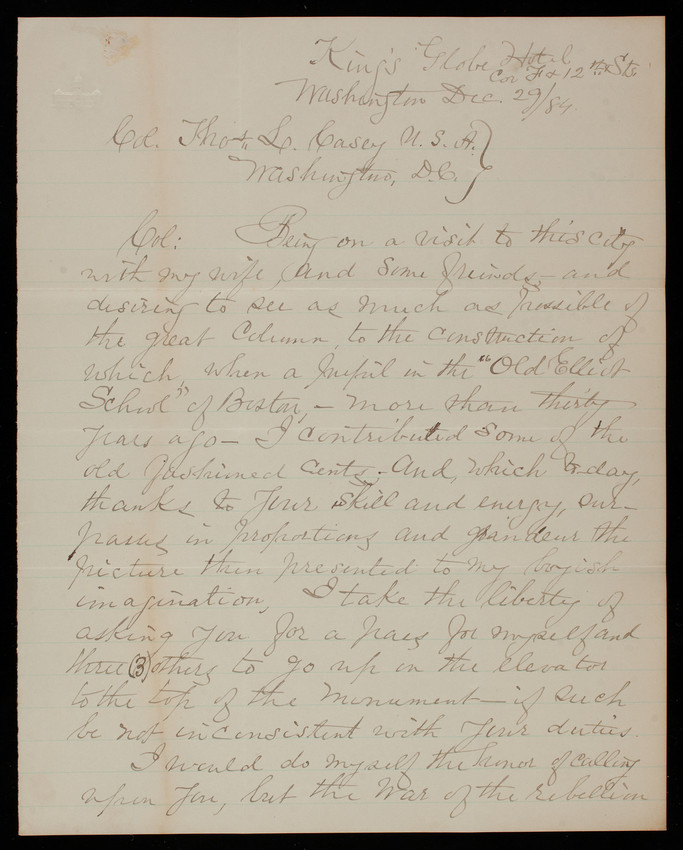 King's Globe Hotel
Cor F & 12th Sts.
Washington Dec. 29/84.
Col. Thos. L. Casey U. S. A.
Washington, D.C.
Col: Being on a visit to this city
with my wife, and some freinds, - and
desiring to see as much as possible of
the great Column, to the construction of
which, when a pupil in the "Old Elliot
School" of Boston, - more than thirty
years ago - I contributed some of the
old fashioned cents, And, which to-day,
thanks to your skill and energy, sur-
passes in proportions and grandeur the
picture then presented to my boyish
imagination, I take the liberty of
asking you for a pass for myself and
three (3) others to go up in the elevator
to the top of the monument - if such
be not inconsistent with your duties.
I would do myself the honor of calling
upon you, but the War of the rebellion